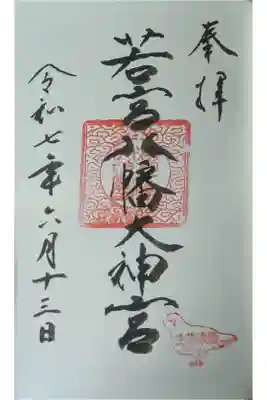 奉拝
若宮八幡大神宮
令和七年六月十三日